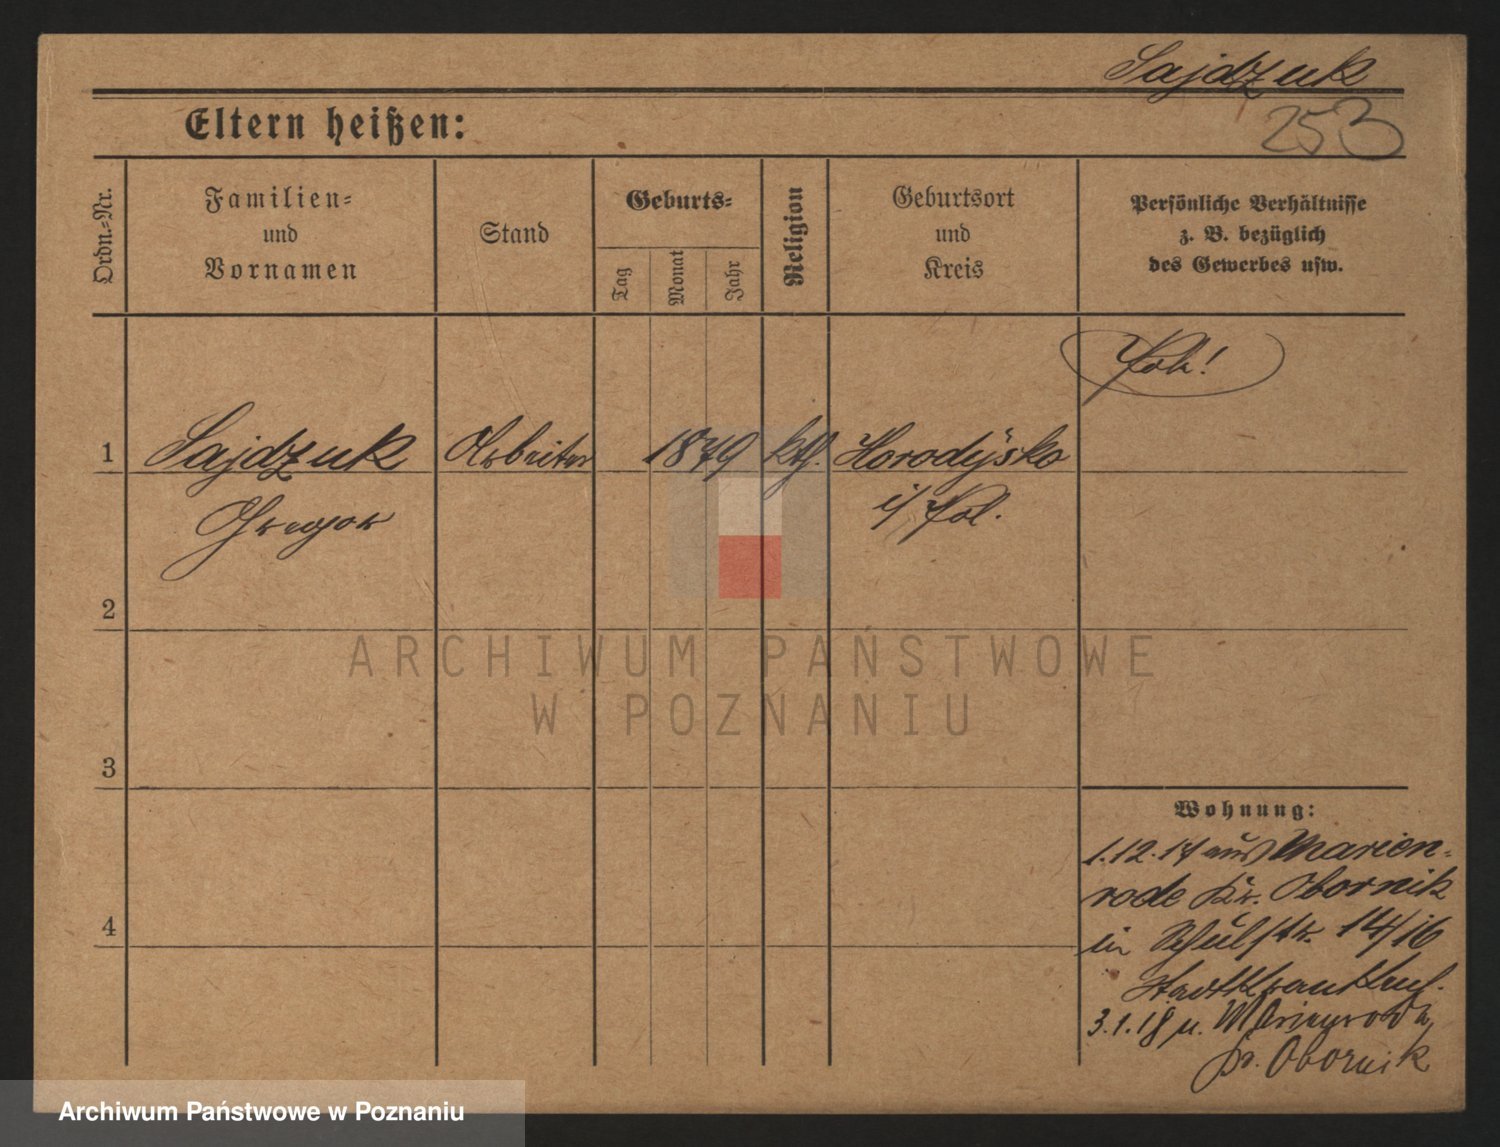 Sajdzuk
253
Eltern heißen:
Ordn.-Nr.
Familien-
und
Vornamen
Stand
Geburts-
Tag
Monat
Jahr
Religion
Geburtsort
und
Kreis
Persönliche Verhältnisse
z. B. bezüglich
des Gewerbes usw.
1 Sajdzuk Arbeiter 1879 kth. Horodÿsko
Gregor i/ Pol.
2
3
4
Wohnung:
1.12.17 aus Marien-
rode Kr. Obornik
in Schulstr. 14/16
Stadtkrankhs.
3.1.18 n. Marienrode
Kr. Obornik
ARCHIWUM PAŃSTWOWE
W POZNANIU
Archiwum Państwowe w Poznaniu